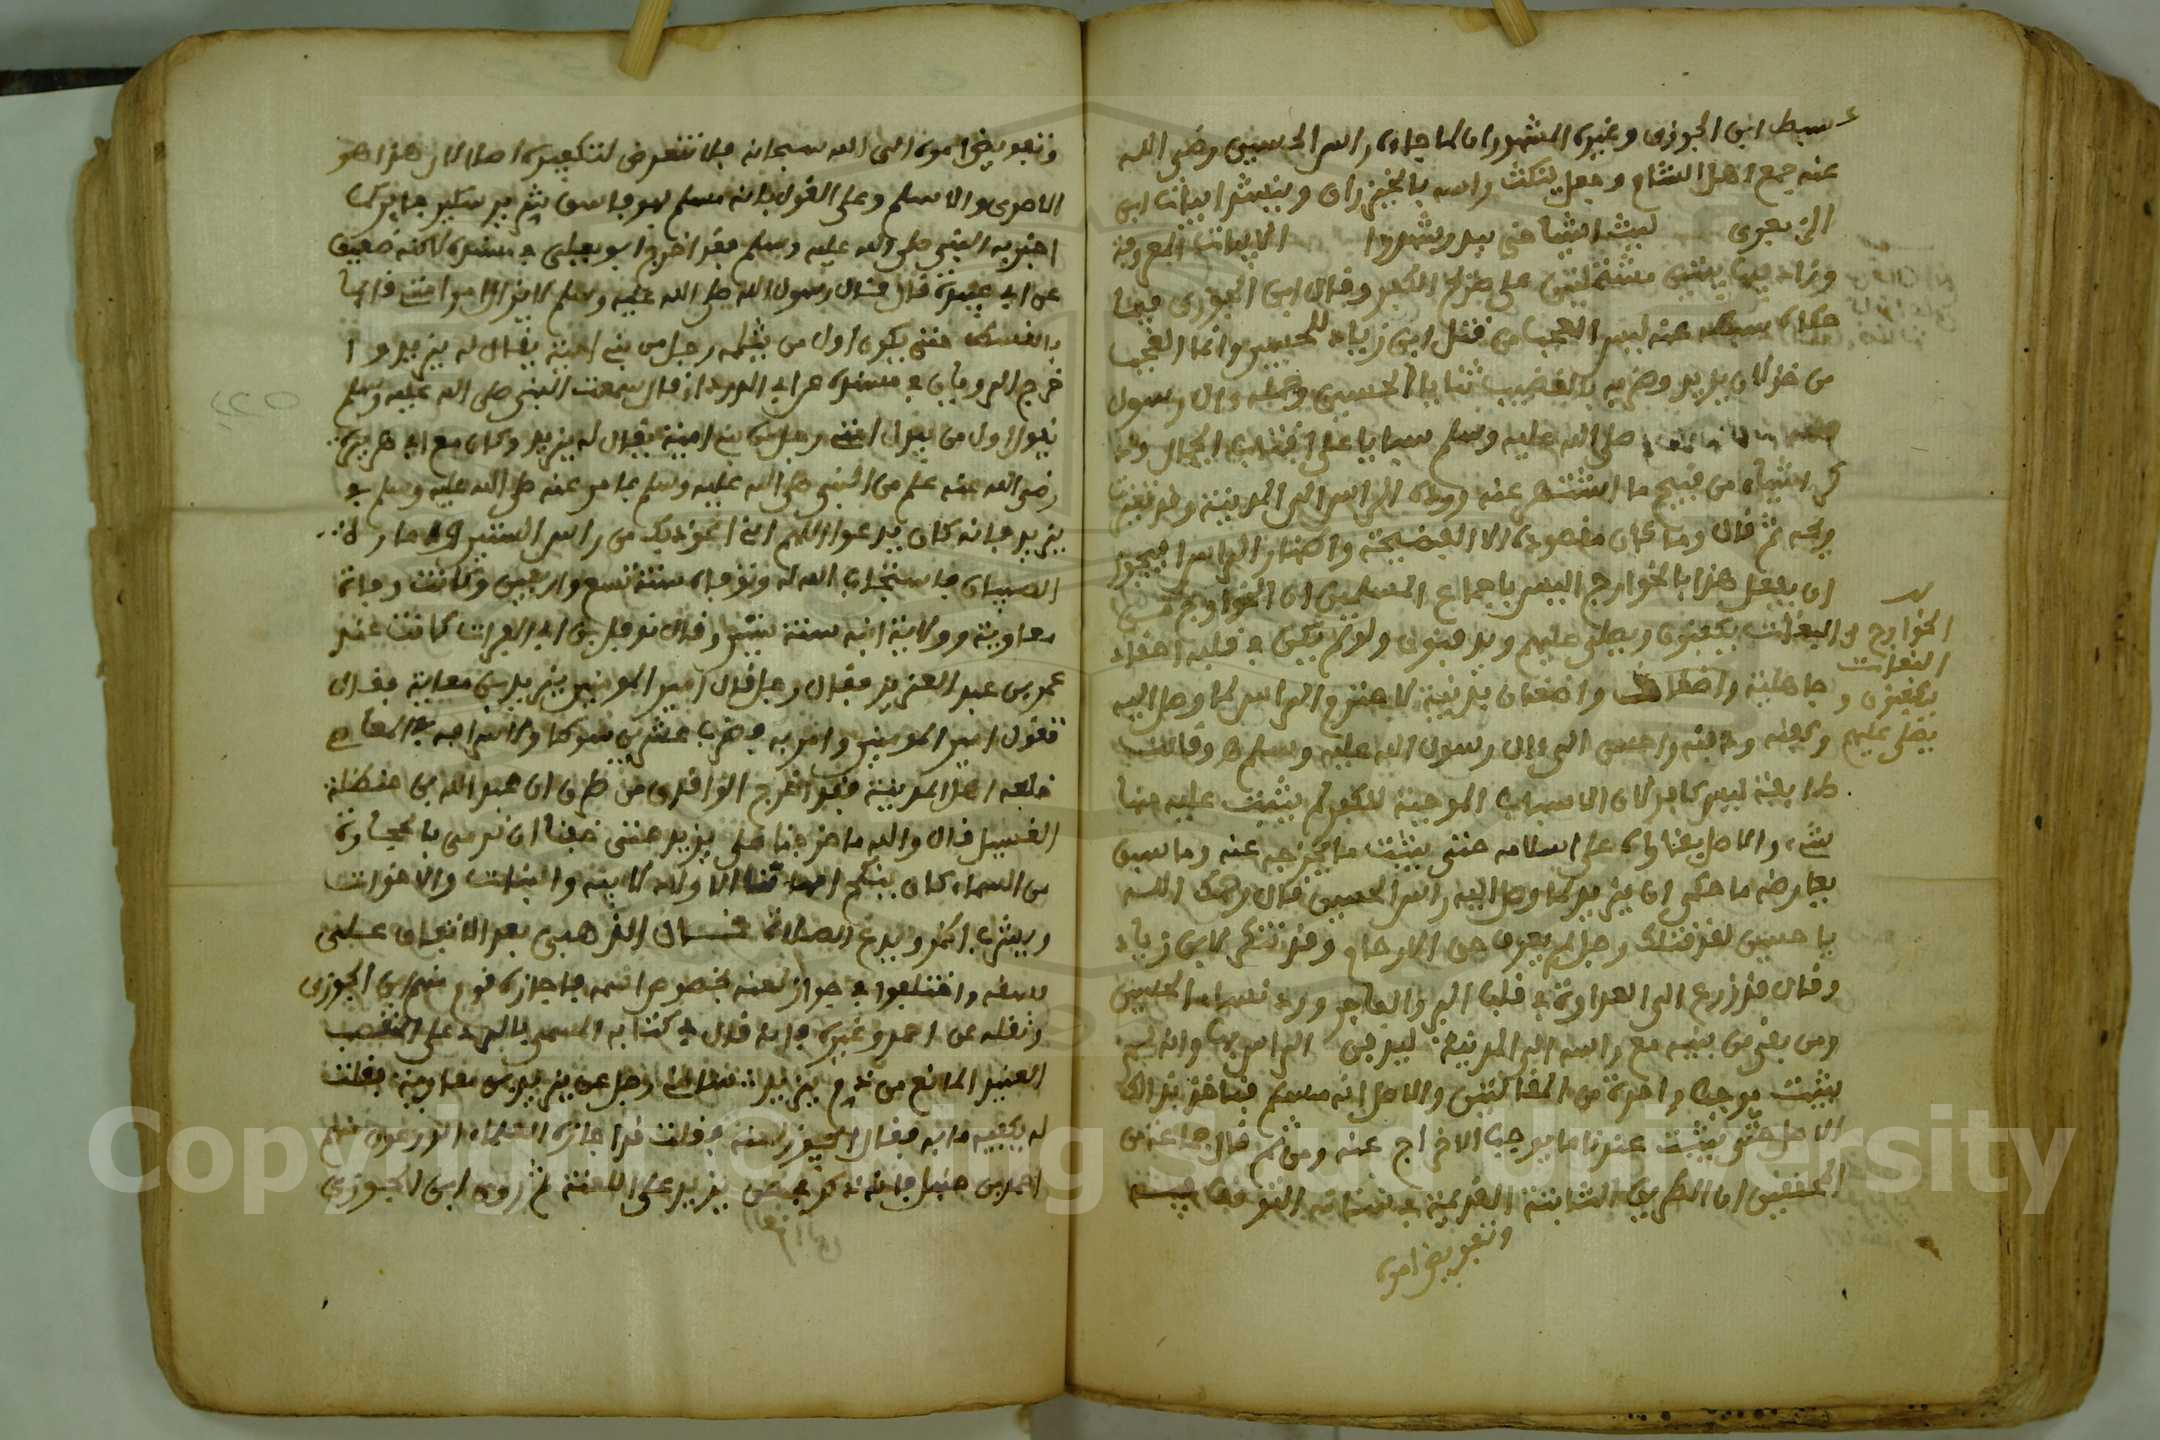 سبط ابن الجوزى وغيره المشهور انه لما جاءه راس الحسين رضى الله
عنه جمع اهل الشام وجعل ينكث راسه بالخيزران وينشد ابيات ابن
الزبعرى ليت اشياخى ببدر شهدوا الابيات المعروفة
وزاد فيها بيتين مشتملين على صريح الكفر وقال ابن الجوزى فيما
حكاه سبطه عنه ليس العجب من قتل ابن زياد للحسين وانما العجب
من خذلان يزيد وضربه بالقضيب ثنايا الحسين وحمله ءال رسول
صلى الله عليه وسلم سبايا على اقتاب الجمال وذ
كر اشياء من قبيح ما اشتهر عنه ورده الراس الى المدينة وقد تغيرت
ريحه ثم قال وما كان مقصوده الا الفضيحة واظهار الراس افيجوز
ان يفعل هذا بالخوارج اليس باجماع المسلمين ان الخوارج
والبغات يكفنون ويصلى عليهم ويدفنون ولو لم يكن فى قلبه احقاد
جاهلية واضغان بدرية لاحترم الراس لما وصل اليه
وكفنه ودفنه واحسن الى ءال رسول الله صلى الله عليه وسلم وقالت
طايفة ليس كافر لان الاسباب الموجبة للكفر لم يثبت عليه منها
شىء والاصل بقاوه على اسلامه حتى يثبت ما يخرجه عنه وما سبق
يعارضه ما حكى ان يزيد لما وصل اليه راس الحسين قال رحمك الله
يا حسين لقد قتلك رجل لم يعرف حق الارحام وقد تنكر لابن زياد
وقال قد زرع الى العداوة فى قلب البر والفاجر ورد نساء الحسين
ومن بقى من بنيه مع راسه الى المدينة ليدفن الراس بها وانه لم
يثبت موجب واحدة من المقالتين والاصل انه مسلم فناخذ بذالك
الاصل حتى يثبت عندنا ما يوجب الاخراج عنه ومن ثم قال جماعة من
المحققين ان الطريق الثابتة القويمة فى شانه التوقف فيه
وتفويض امره
الخوارج و
البغات
يكفنون و
يصلى عليهم
وتفويض امره الى الله سبحانه فلا نتعرض لتكفيره اصلا لان هذا هو
الاحرى والاسلم وعلى القول بانه مسلم هو فاسق شرير سكير جاير كما
اخبر به النبى صلى الله عليه وسلم فقد اخرج ابو يعلى فى مسنده لاكنه ضعيف
عن ابى عبيدة قال قال رسول الله صلى الله عليه وسلم لا يزال امر امتى قايما
بالقسط حتى يكون اول من يثلمه رجل من بنى امية يقال له يزيد وا
خرج الرويانى فى مسنده عن ابى الدرداء قال سمعت النبى صلى الله عليه وسلم
يقول اول من يبدل سنتى رجل من بنى امية يقال له يزيد وكان مع ابى هريرة
رضى الله عنه علم من النبى صلى الله عليه وسلم بما مر عنه صلى الله عليه وسلم فى
يزيد فانه كان يدعو اللهم انى اعوذ بك من راس الستين وامارة
الصبيان فاستجاب الله له وتوفاه سنة تسع واربعين وكانت وفاة
معاوية وولاية ابنه سنة ستين وقال نوفل بن ابى الفرات كنت عند
عمر بن عبد العزيز فقال رجل قال امير المومنين يزيد بن معاية فقال
تقول امير المومنين وامر به فضرب عشرين سوطا ولاسرافه فى المعاصى
خلعه اهل المدينة فقد اخرج الواقدى من طرق ان عبد الله بن حنظلة
الغسيل قال والله ما خرجنا على يزيد حتى خفنا ان نرمى بالحجارة
من السماء كان ينكح امهات الاولاد لابيه والبنات والاخوات
ويشرب الخمر ويدع الصلاة الذهبى بعد الاتفاق على
فسقه واختلفوا فى جواز لعنه بخصوص اسمه فاجازه قوم منهم ابن الجوزى
ونقله عن احمد وغيره فانه قال فى كتابه المسمى بالرد على المتعصب
العنيد المانع من ذم يزيد سالنى رجل عن يزيد بن معاوية فقلت
له يكفيه ما به فقال ايجوز لعنه فقلت قد اجازه العلماء الورعون منهم
احمد بن حنبل فانه ذكر فى حق يزيد على اللعنة ثم روى ابن الجوزى
Copyright © King Saud University